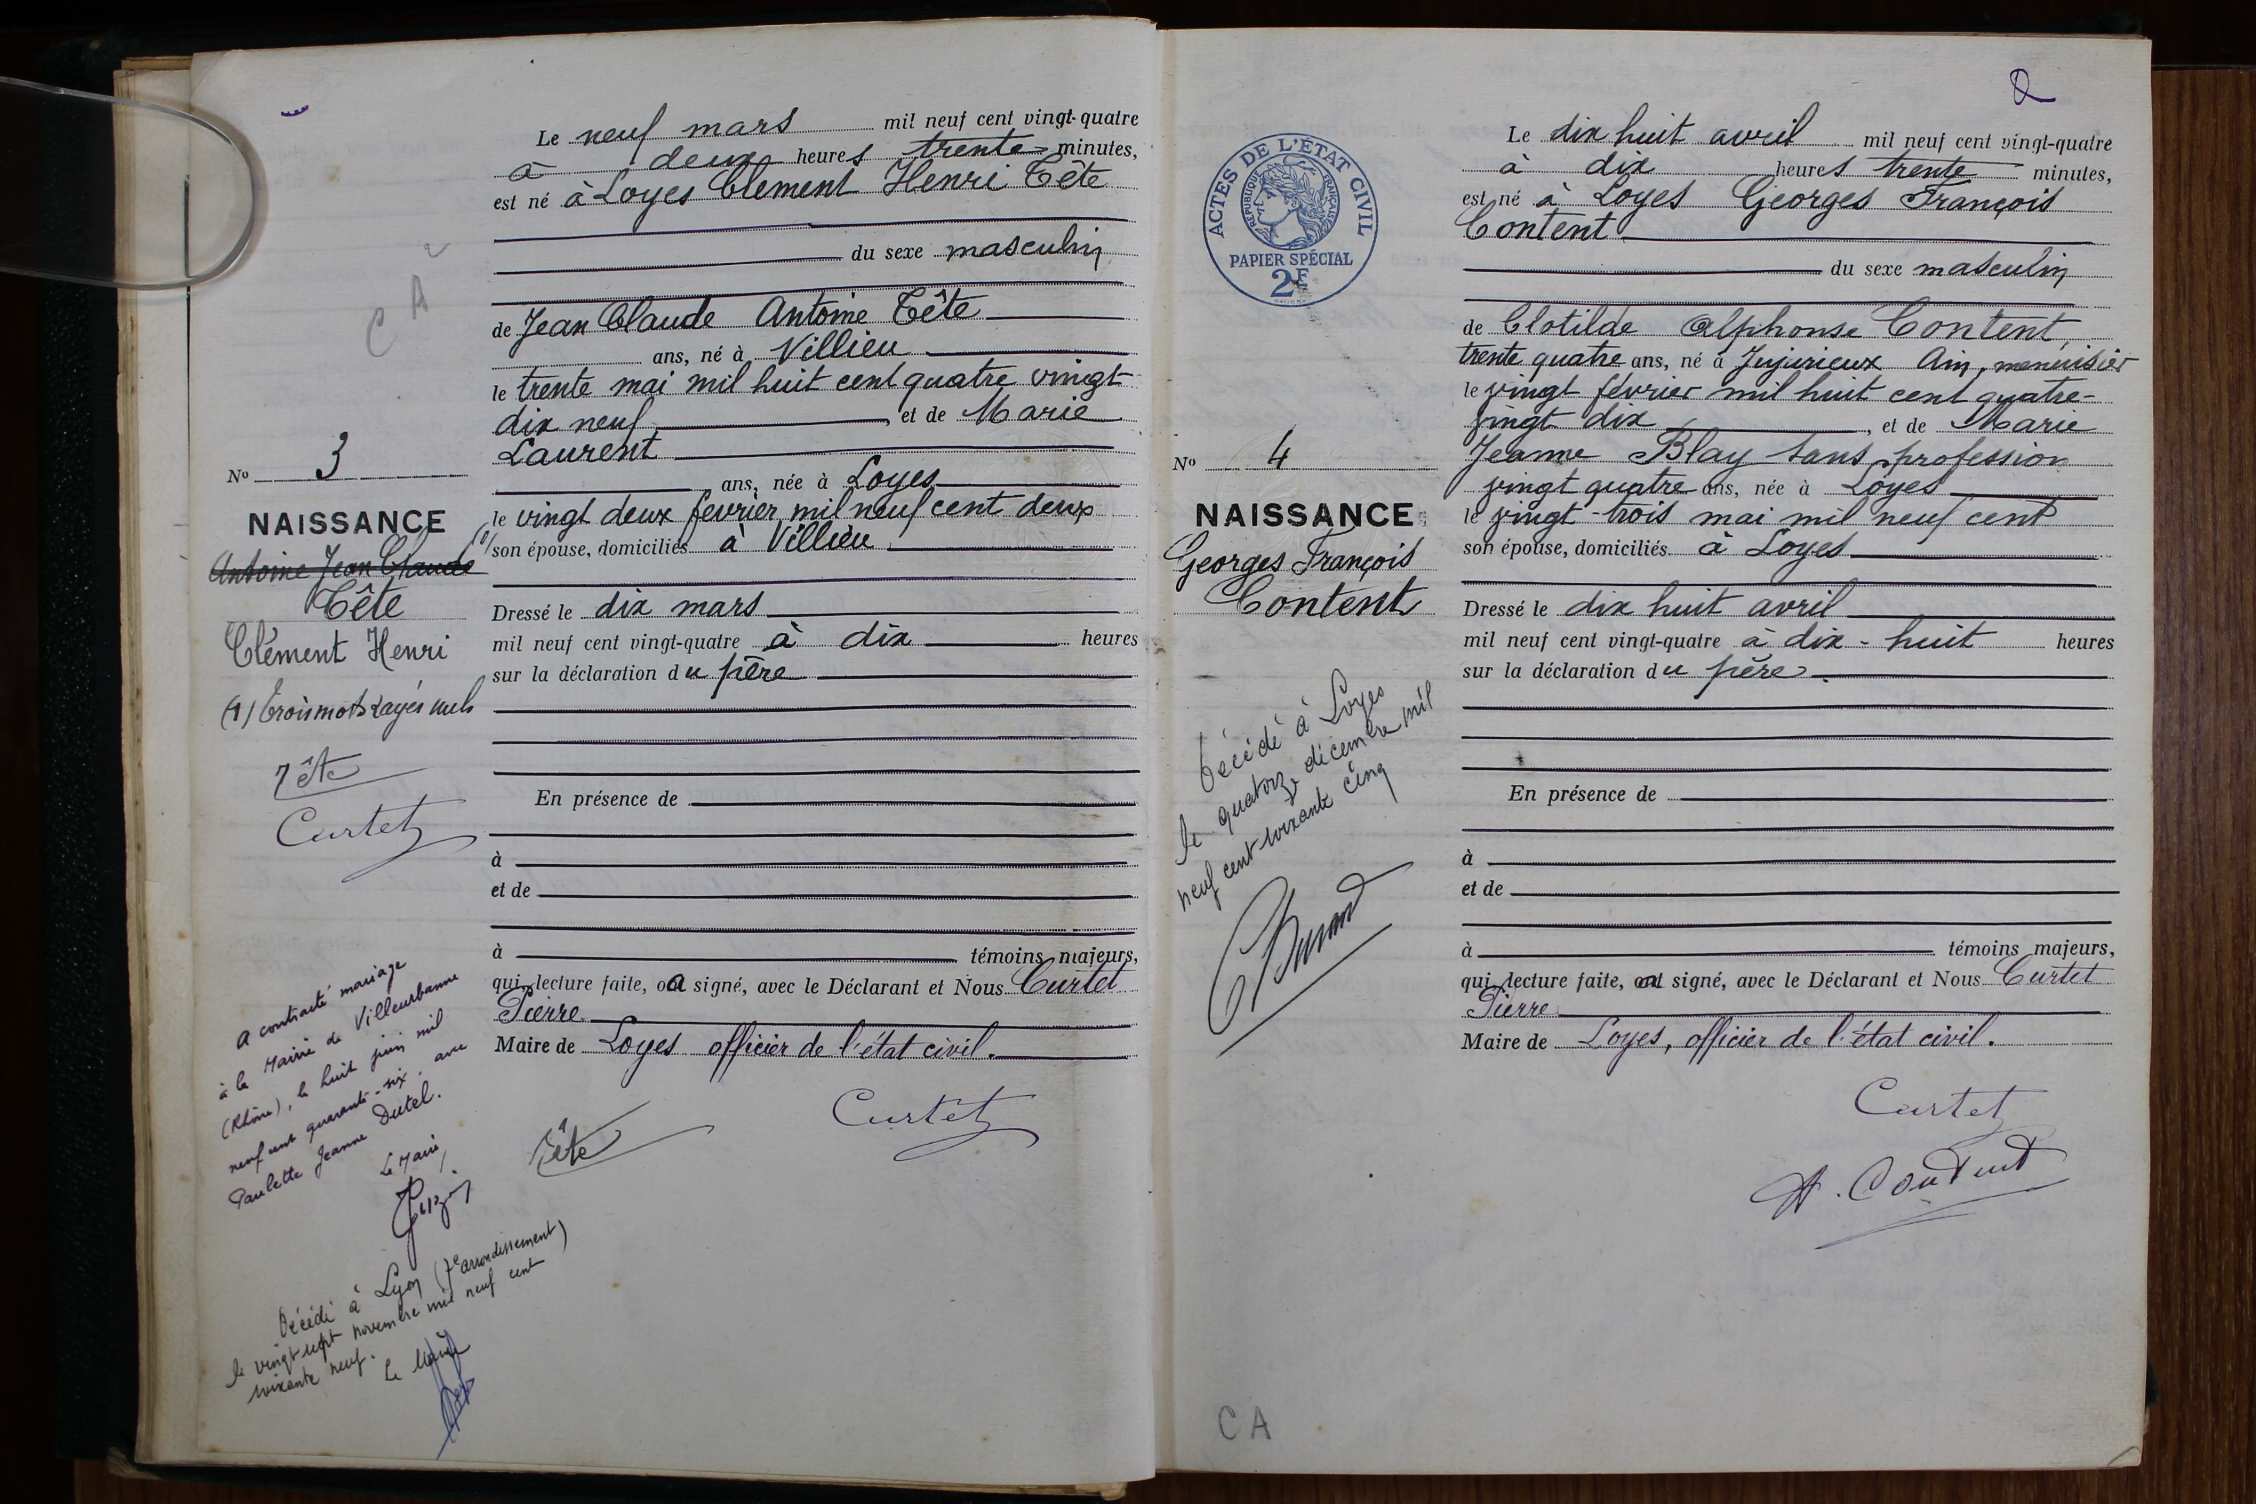 Le neuf mars mil neuf cent vingt-quatre
à deux heures trente minutes,
est né à Loyes Clément Henri Tête
du sexe masculin
de Jean Claude Antoine Tête
ans, né à Villieu
le trente mai mil huit cent quatre vingt
dix neuf, et de Marie
Laurent
ans, née à Loyes
le vingt deux février mil neuf cent deux
son épouse, domiciliés à Villieu
Dressé le dix mars
mil neuf cent vingt-quatre à dix heures
sur la déclaration du père
En présence de
à
et de
à témoins majeurs,
qui, lecture faite, oa signé, avec le Déclarant et Nous Curtet
Pierre
Maire de Loyes officier de l'état civil.
Tête
Curtet
C A
No 3
NAISSANCE
Antoine Jean Claude (1)
Tête
Clément Henri
(1) Trois mots rayés nuls
Tête
Curtet
A contracté mariage
à la Mairie de Villeurbanne
(Rhône), le huit juin mil
neuf cent quarante-six, avec
Paulette Jeanne Dutel.
Le Maire,
Décédé à Lyon (7e arrondissement)
le vingt sept novembre mil neuf cent
soixante neuf.
Le Maire
2
ACTES DE L'ÉTAT CIVIL
RÉPUBLIQUE FRANÇAISE
PAPIER SPÉCIAL
2F
Le dix huit avril mil neuf cent vingt-quatre
à dix heures trente minutes,
est né à Loyes Georges François
Content
du sexe masculin
de Clotilde Alphonse Content
trente quatre ans, né à Jujurieux Ain, menuisier
le vingt février mil huit cent quatre-
vingt dix, et de Marie
Jeanne Blay sans profession
vingt quatre ans, née à Loyes
le vingt-trois mai mil neuf cent
son épouse, domiciliés à Loyes
Dressé le dix huit avril
mil neuf cent vingt-quatre à dix-huit heures
sur la déclaration du père.
En présence de
à
et de
à témoins majeurs,
qui, lecture faite, ont signé, avec le Déclarant et Nous Curtet
Pierre
Maire de Loyes, officier de l'état civil.
Curtet
A. Content
No 4
NAISSANCE
Georges François
Content
Décédé à Loyes
le quatorze décembre mil
neuf cent soixante cinq
C A